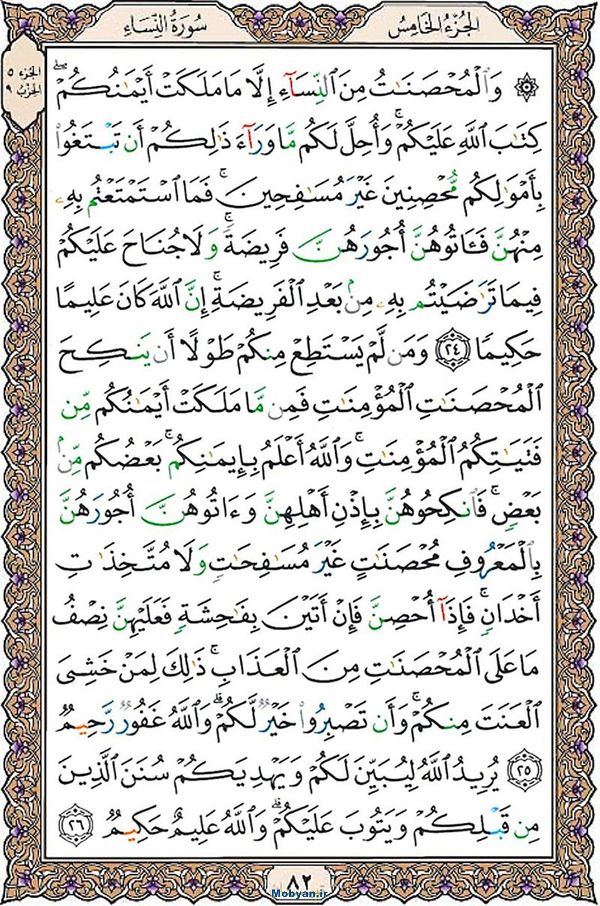 الجُزْءُ الخَامِسُ
سُورَةُ النِّسَاءِ
الجزء ٥
الحزب ٩
۞ وَٱلْمُحْصَنَٰتُ مِنَ ٱلنِّسَآءِ إِلَّا مَا مَلَكَتْ أَيْمَٰنُكُمْ ۖ
كِتَٰبَ ٱللَّهِ عَلَيْكُمْ ۚ وَأُحِلَّ لَكُم مَّا وَرَآءَ ذَٰلِكُمْ أَن تَبْتَغُوا۟
بِأَمْوَٰلِكُم مُّحْصِنِينَ غَيْرَ مُسَٰفِحِينَ ۚ فَمَا ٱسْتَمْتَعْتُم بِهِۦ
مِنْهُنَّ فَـَٔاتُوهُنَّ أُجُورَهُنَّ فَرِيضَةً ۚ وَلَا جُنَاحَ عَلَيْكُمْ
فِيمَا تَرَٰضَيْتُم بِهِۦ مِنۢ بَعْدِ ٱلْفَرِيضَةِ ۚ إِنَّ ٱللَّهَ كَانَ عَلِيمًا
حَكِيمًا ٢٤ وَمَن لَّمْ يَسْتَطِعْ مِنكُمْ طَوْلًا أَن يَنكِحَ
ٱلْمُحْصَنَٰتِ ٱلْمُؤْمِنَٰتِ فَمِن مَّا مَلَكَتْ أَيْمَٰنُكُم مِّن
فَتَيَٰتِكُمُ ٱلْمُؤْمِنَٰتِ ۚ وَٱللَّهُ أَعْلَمُ بِإِيمَٰنِكُم ۚ بَعْضُكُم مِّنۢ
بَعْضٍ ۚ فَٱنكِحُوهُنَّ بِإِذْنِ أَهْلِهِنَّ وَءَاتُوهُنَّ أُجُورَهُنَّ
بِٱلْمَعْرُوفِ مُحْصَنَٰتٍ غَيْرَ مُسَٰفِحَٰتٍ وَلَا مُتَّخِذَٰتِ
أَخْدَانٍ ۚ فَإِذَآ أُحْصِنَّ فَإِنْ أَتَيْنَ بِفَٰحِشَةٍ فَعَلَيْهِنَّ نِصْفُ
مَا عَلَى ٱلْمُحْصَنَٰتِ مِنَ ٱلْعَذَابِ ۚ ذَٰلِكَ لِمَنْ خَشِىَ
ٱلْعَنَتَ مِنكُمْ ۚ وَأَن تَصْبِرُوا۟ خَيْرٌ لَّكُمْ ۗ وَٱللَّهُ غَفُورٌ رَّحِيمٌ
٢٥ يُرِيدُ ٱللَّهُ لِيُبَيِّنَ لَكُمْ وَيَهْدِيَكُمْ سُنَنَ ٱلَّذِينَ
مِن قَبْلِكُمْ وَيَتُوبَ عَلَيْكُمْ ۗ وَٱللَّهُ عَلِيمٌ حَكِيمٌ ٢٦
٨٢
Mobyan.ir